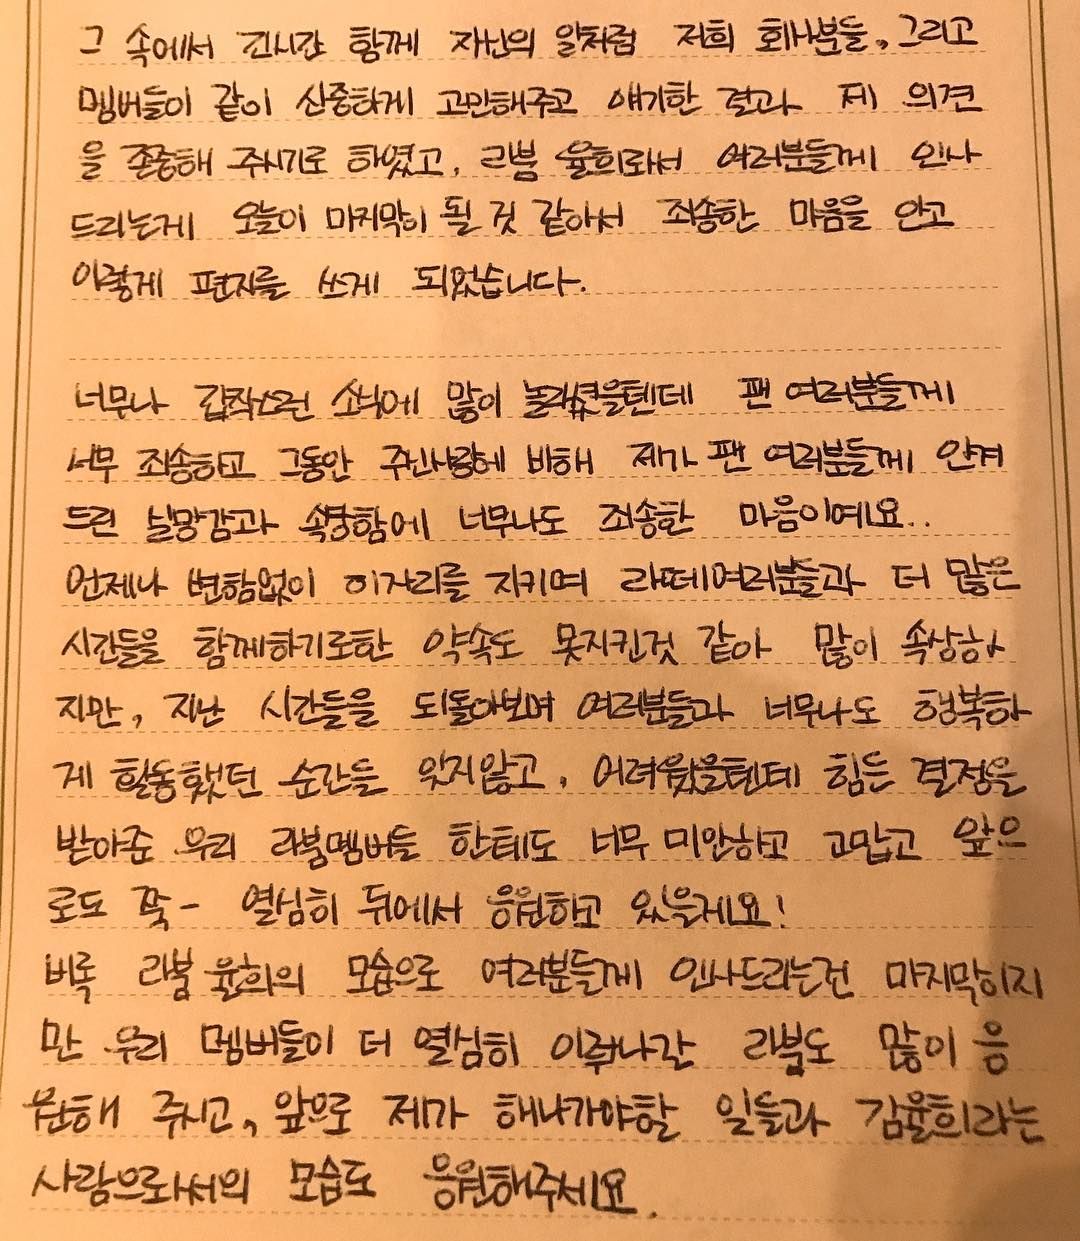 그 속에서 긴시간 함께 자신의 일처럼 저희 회사분들, 그리고
멤버들이 같이 신중하게 고민해주고 얘기한 결과 제 의견
을 존중해 주시기로 하였고, 라붐 율희로서 여러분들께 인사
드리는게 오늘이 마지막이 될 것 같아서 죄송한 마음을 안고
이렇게 편지를 쓰게 되었습니다.
너무나 갑작스런 소식에 많이 놀라셨을텐데 팬 여러분들께
너무 죄송하고 그동안 주신사랑에 비해 제가 팬 여러분들께 안겨
드린 실망감과 속상함에 너무나도 죄송한 마음이예요..
언제나 변함없이 이자리를 지키며 라떼여러분들과 더 많은
시간들을 함께하기로한 약속도 못지킨것 같아 많이 속상하
지만, 지난 시간들을 되돌아보며 여러분들과 너무나도 행복하
게 활동했던 순간들 잊지않고, 어려웠을텐데 힘든 결정을
받아준 우리 라붐멤버들 한테도 너무 미안하고 고맙고 앞으
로도 쭉- 열심히 뒤에서 응원하고 있을게요!
비록 라붐 율희의 모습으로 여러분들께 인사드리는건 마지막이지
만 우리 멤버들이 더 열심히 이뤄나갈 라붐도 많이 응
원해 주시고, 앞으로 제가 해나가야할 일들과 김율희라는
사람으로서의 모습도 응원해주세요.